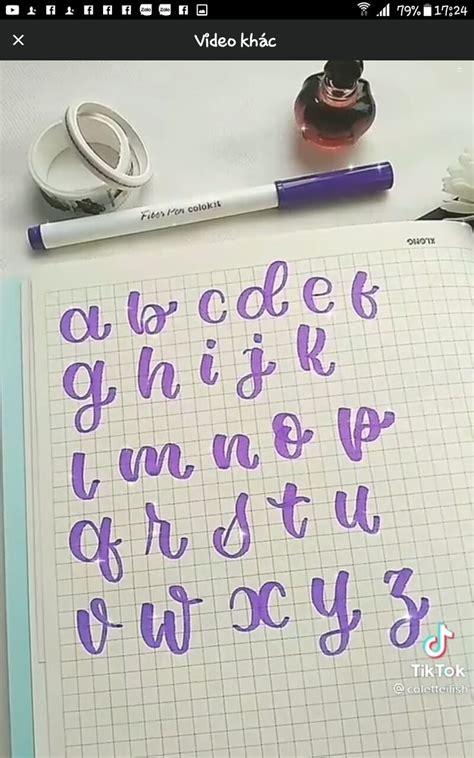 79% 17:24
Video khác
Fiber Pen colokit
KLONG
a b c d e f
g h i j k
l m n o p
q r s t u
v w x y z
TikTok
@coletteilish